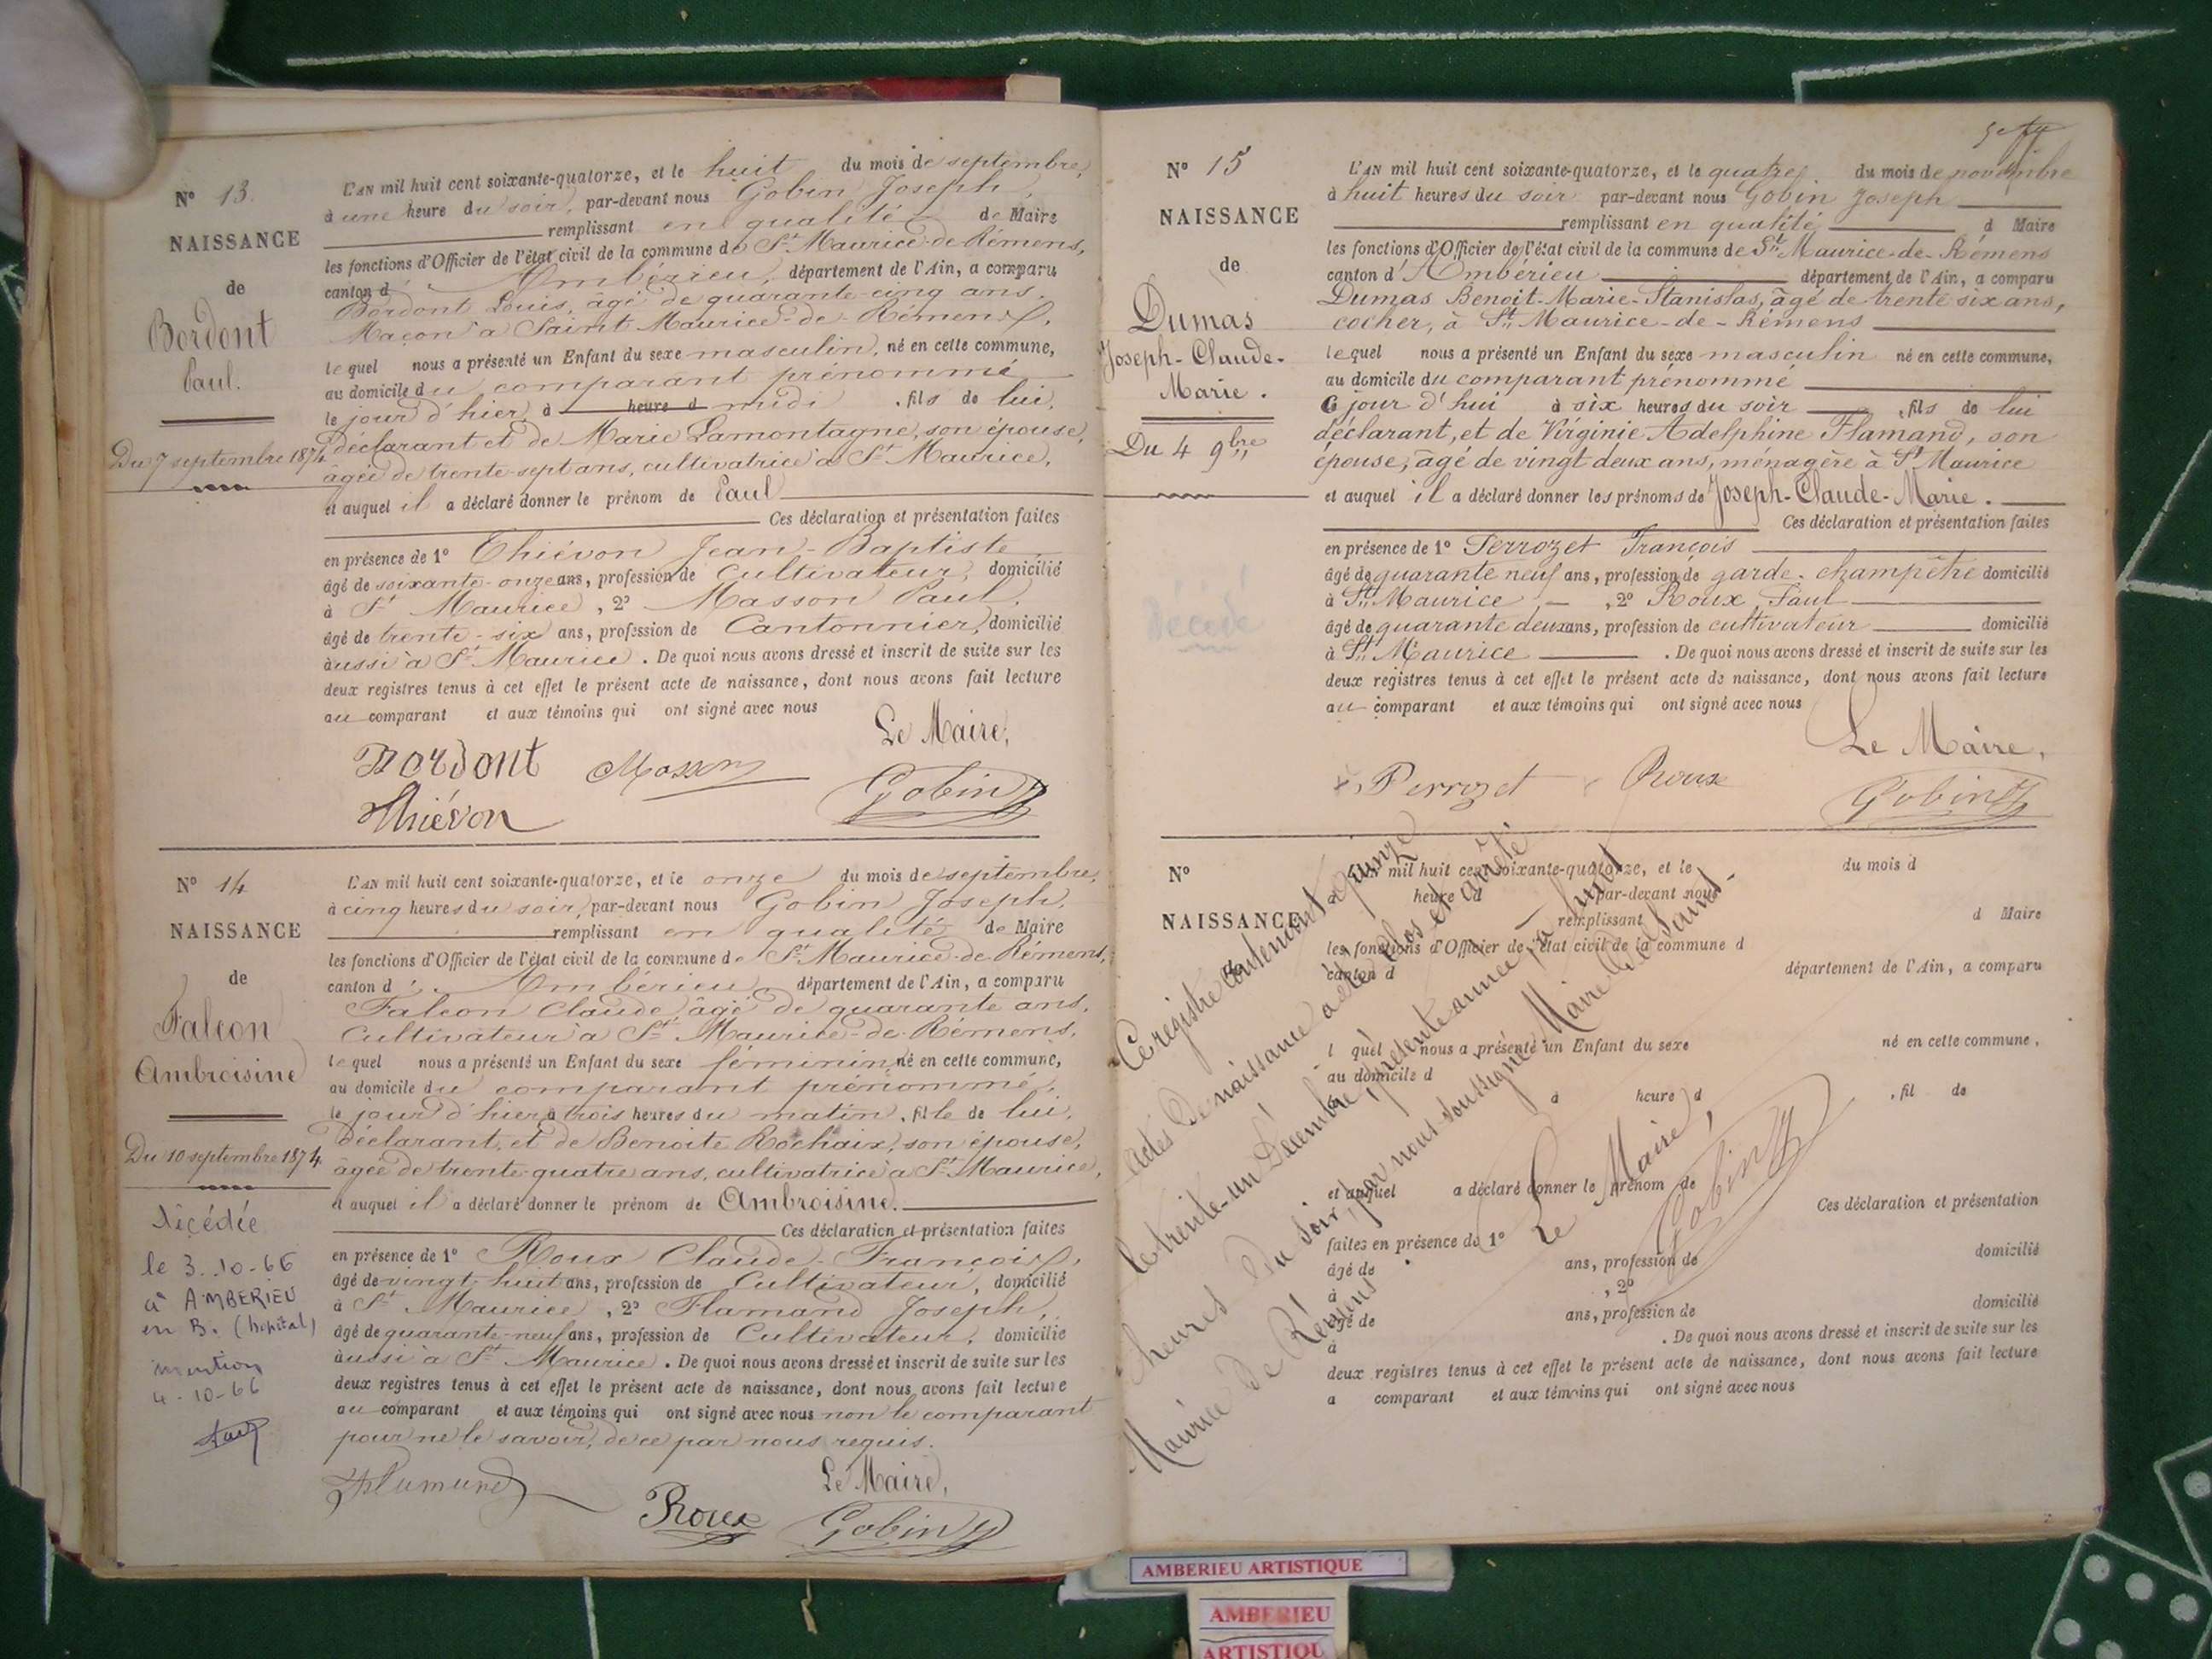 N° 13.
NAISSANCE
de
Bordont
Paul.
Du 7 septembre 1874
L'AN mil huit cent soixante-quatorze, et le huit du mois de septembre,
à une heure du soir, par-devant nous Gobin Joseph,
remplissant en qualité de Maire
les fonctions d'Officier de l'état civil de la commune de St Maurice-de-Rémens,
canton d'Ambérieu, département de l'Ain, a comparu
Bordont Louis, âgé de quarante-cinq ans,
Maçon à Saint Maurice-de-Rémens,
lequel nous a présenté un Enfant du sexe masculin, né en cette commune,
au domicile du comparant prénommé
le jour d'hier, à heure d midi, fils de lui,
déclarant et de Marie Lamontagne, son épouse,
âgée de trente-sept ans, cultivatrice à St Maurice,
et auquel il a déclaré donner le prénom de Paul
Ces déclaration et présentation faites
en présence de 1° Thiévon Jean-Baptiste
âgé de soixante-onze ans, profession de Cultivateur, domicilié
à St Maurice, 2° Masson Paul,
âgé de trente-six ans, profession de Cantonnier, domicilié
aussi à St Maurice. De quoi nous avons dressé et inscrit de suite sur les
deux registres tenus à cet effet le présent acte de naissance, dont nous avons fait lecture
au comparant et aux témoins qui ont signé avec nous
Le Maire,
Bordont Masson Gobin
Thiévon
N° 14
NAISSANCE
de
Falcon
Ambroisine
Du 10 septembre 1874
Décédée
le 3.10-66
à AMBERIEU
en B. (hopital)
mention
4-10-66
L'AN mil huit cent soixante-quatorze, et le onze du mois de septembre,
à cinq heures du soir, par-devant nous Gobin Joseph,
remplissant en qualité de Maire
les fonctions d'Officier de l'état civil de la commune de St Maurice-de-Rémens,
canton d'Ambérieu, département de l'Ain, a comparu
Falcon Claude âgé de quarante ans,
Cultivateur à St Maurice-de-Rémens,
lequel nous a présenté un Enfant du sexe féminin, né en cette commune,
au domicile du comparant prénommé,
le jour d'hier à trois heures du matin, fille de lui,
déclarant, et de Benoite Rochaix, son épouse,
âgée de trente-quatre ans, cultivatrice à St Maurice,
et auquel il a déclaré donner le prénom de Ambroisine.
Ces déclaration et présentation faites
en présence de 1° Roux Claude-François,
âgé de vingt huit ans, profession de Cultivateur, domicilié
à St Maurice, 2° Flamand Joseph,
âgé de quarante-neuf ans, profession de Cultivateur, domicilié
aussi à St Maurice. De quoi nous avons dressé et inscrit de suite sur les
deux registres tenus à cet effet le présent acte de naissance, dont nous avons fait lecture
au comparant et aux témoins qui ont signé avec nous non le comparant
pour ne le savoir, de ce par nous requis.
Le Maire,
Flamand Roux Gobin
N° 15
NAISSANCE
de
Dumas
Joseph-Claude-
Marie.
Du 4 9bre
Décédé
L'AN mil huit cent soixante-quatorze, et le quatre du mois de novembre
à huit heures du soir par-devant nous Gobin Joseph
remplissant en qualité d Maire
les fonctions d'Officier de l'état civil de la commune de St Maurice-de-Rémens
canton d'Ambérieu département de l'Ain, a comparu
Dumas Benoit-Marie-Stanislas, âgé de trente six ans,
cocher, à St Maurice-de-Rémens
lequel nous a présenté un Enfant du sexe masculin né en cette commune,
au domicile du comparant prénommé
Ce jour d'hui à six heures du soir, fils de lui
déclarant, et de Virginie Adelphine Flamand, son
épouse, âgé de vingt deux ans, ménagère à St Maurice
et auquel il a déclaré donner les prénoms de Joseph-Claude-Marie.
Ces déclaration et présentation faites
en présence de 1° Perrozet François
âgé de quarante neuf ans, profession de garde-champêtre domicilié
à St Maurice, 2° Roux Paul
âgé de quarante deux ans, profession de cultivateur domicilié
à St Maurice. De quoi nous avons dressé et inscrit de suite sur les
deux registres tenus à cet effet le présent acte de naissance, dont nous avons fait lecture
au comparant et aux témoins qui ont signé avec nous
Le Maire,
Perrozet Roux Gobin
N°
NAISSANCE
de
L'AN mil huit cent soixante-quatorze, et le du mois d
à heure d par-devant nous
remplissant d Maire
les fonctions d'Officier de l'état civil de la commune d
canton d département de l'Ain, a comparu
l quel nous a présenté un Enfant du sexe né en cette commune,
au domicile d
à heure d , fil de
et auquel a déclaré donner le prénom de
Ces déclaration et présentation
faites en présence de 1°
âgé de ans, profession de domicilié
à , 2°
âgé de ans, profession de domicilié
à . De quoi nous avons dressé et inscrit de suite sur les
deux registres tenus à cet effet le présent acte de naissance, dont nous avons fait lecture
a comparant et aux témoins qui ont signé avec nous
Ce registre contenant quinze
actes de naissance a été clos et arrêté
le trente-un Décembre présente année, à huit
heures du soir, par nous soussigné Maire de Saint-
Maurice de Rémens.
Le Maire,
Gobin
AMBERIEU ARTISTIQUE
AMBERIEU
ARTISTIQU